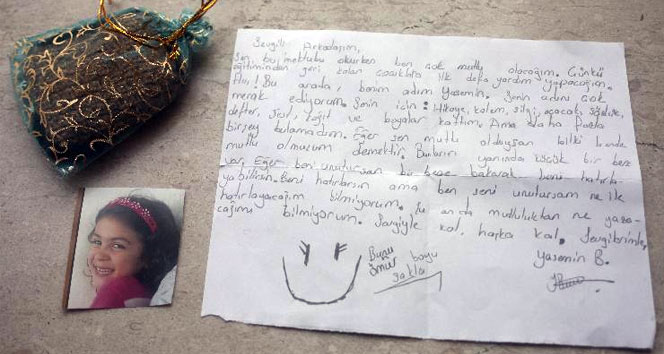 Sevgili Arkadaşım,
Sen bu mektubu okurken ben çok mutlu olacağım. Çünkü
eğitiminden geri kalan çocuklara ilk defa yardım yapacağım.
Ah! Bu arada, benim adım Yasemin. Senin adını çok
merak ediyorum. Senin için: Hikaye, kalem, silgi, açacak, sözlük,
defter, ve boyalar kattım. Ama daha fazla
birşey bulamadım. Eğer sen mutlu olduysan bilki bende
mutlu olmuşum demektir. Bunların yanında küçük bir
var. Eğer beni unutursan bu bakarak beni hatırla-
yabilirsin. Beni hatırlarsın ama ben seni unutursam ne ile
hatırlayacağım bilmiyorum. Şu anda mutluluktan ne yapa-
cağımı bilmiyorum. Sevgiyle kal, hoşça kal. Sevgilerimle,
Yasemin B.
Bunu
ömür boyu
sakla